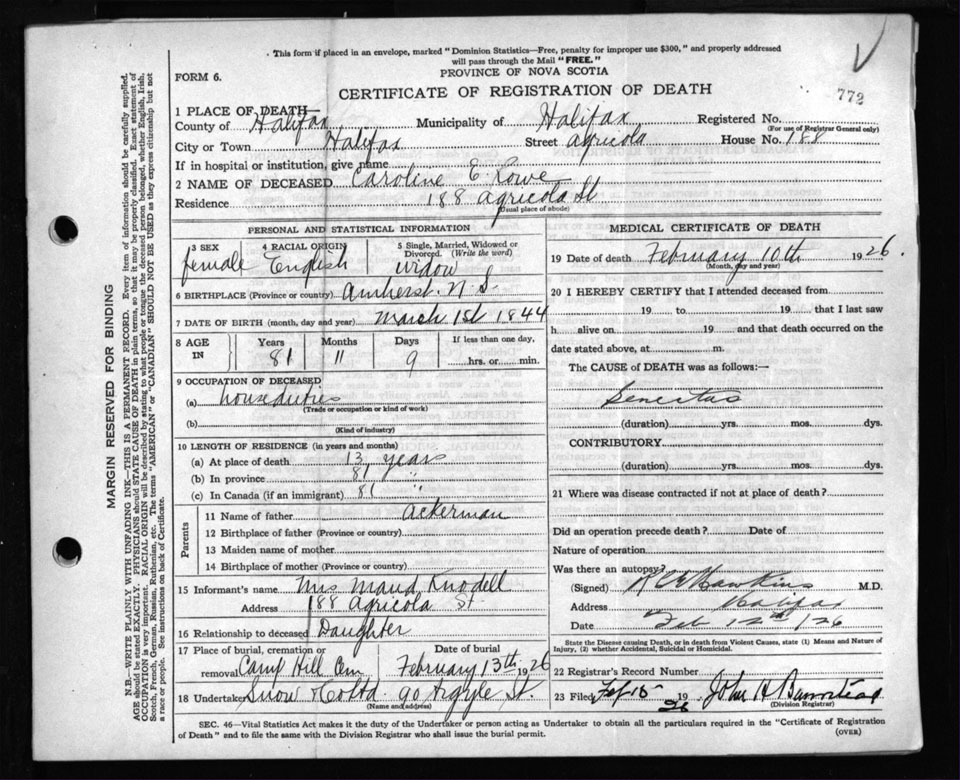 This form if placed in an envelope, marked "Dominion Statistics—Free, penalty for improper use $300," and properly addressed
will pass through the Mail "FREE."
FORM 6.
PROVINCE OF NOVA SCOTIA
CERTIFICATE OF REGISTRATION OF DEATH
772
1 PLACE OF DEATH—
County of Halifax Municipality of Halifax Registered No.
(For use of Registrar General only)
City or Town Halifax Street Agricola House No. 188
If in hospital or institution, give name
2 NAME OF DECEASED Caroline E. Rowe
Residence 188 Agricola St
(Usual place of abode)
PERSONAL AND STATISTICAL INFORMATION
3 SEX female
4 RACIAL ORIGIN English
5 Single, Married, Widowed or Divorced. (Write the word) widow
6 BIRTHPLACE (Province or country) Amherst. N.S.
7 DATE OF BIRTH (month, day and year) March 1st 1844
8 AGE IN Years 81 Months 11 Days 9 If less than one day, hrs. or min.
9 OCCUPATION OF DECEASED
(a) house duties
(Trade or occupation or kind of work)
(b)
(Kind of industry)
10 LENGTH OF RESIDENCE (in years and months)
(a) At place of death 13 years
(b) In province 81 "
(c) In Canada (if an immigrant) 81 "
Parents
11 Name of father Ackerman
12 Birthplace of father (Province or country)
13 Maiden name of mother
14 Birthplace of mother (Province or country)
15 Informant's name Mrs Maud Knodell
Address 188 Agricola St
16 Relationship to deceased Daughter
17 Place of burial, cremation or removal Camp Hill Cem Date of burial February 13th 1926
18 Undertaker Snow & Co Ltd. 90 Argyle St.
(Name and address)
MEDICAL CERTIFICATE OF DEATH
19 Date of death February 10th 1926.
(Month, day and year)
20 I HEREBY CERTIFY that I attended deceased from
19 to 19 that I last saw
h alive on 19 and that death occurred on
date stated above, at m.
The CAUSE of DEATH was as follows:—
Senectus
(duration) yrs. mos. dys.
CONTRIBUTORY
(duration) yrs. mos. dys.
21 Where was disease contracted if not at place of death?
Did an operation precede death? Date of
Nature of operation
Was there an autopsy?
(Signed) Hawkins M.D.
Address Halifax
Date Feb 12th/26
State the Disease causing Death, or in death from Violent Causes, state (1) Means and Nature of
Injury, (2) whether Accidental, Suicidal or Homicidal.
22 Registrar's Record Number
23 Filed Feb 15 1926 John H Barnstead
(Division Registrar)
SEC. 46—Vital Statistics Act makes it the duty of the Undertaker or person acting as Undertaker to obtain all the particulars required in the "Certificate of Registration
of Death" and to file the same with the Division Registrar who shall issue the burial permit.
(OVER)
MARGIN RESERVED FOR BINDING
N.B.—WRITE PLAINLY WITH UNFADING INK—THIS IS A PERMANENT RECORD. Every item of information should be carefully supplied.
AGE should be stated EXACTLY. PHYSICIANS should STATE CAUSE OF DEATH in plain terms, so that it may be properly classified. Exact statement of
OCCUPATION is very important. RACIAL ORIGIN will be described by stating to what people or tongue the deceased person belonged, whether English, Irish,
Scotch, French, German, Russian, Ruthenian, etc. The terms "AMERICAN" or "CANADIAN" SHOULD NOT BE USED as they express citizenship but not
a race or people. See instructions on back of Certificate.